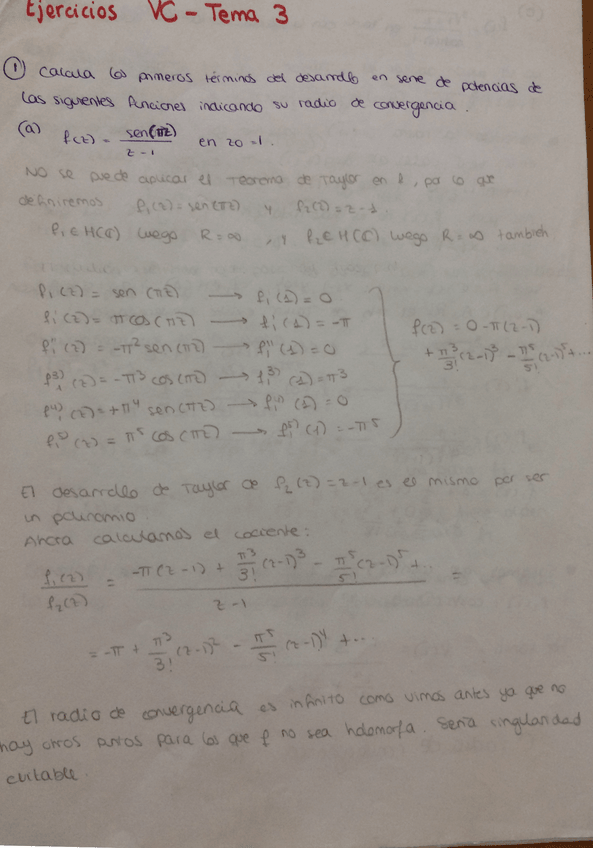 Ejercicios VC - Tema 3
① Calcula los primeros términos del desarrollo en serie de potencias de
las siguientes funciones indicando su radio de convergencia.
(a) f(z) = sen(πz) / z-1 en z0=1.
No se puede aplicar el Teorema de Taylor en 1, por lo que
definiremos f₁(z)=sen(πz) y f₂(z)=z-1.
f₁∈H(ℂ) luego R=∞, y f₂∈H(ℂ) luego R=∞ también
f₁(z) = sen(πz) → f₁(1)=0
f₁'(z) = πcos(πz) → f₁'(1)=-π
f₁''(z) = -π²sen(πz) → f₁''(1)=0
f₁³⁾(z) = -π³cos(πz) → f₁³⁾(1)=π³
f₁⁴⁾(z) = +π⁴sen(πz) → f₁⁴⁾(1)=0
f₁⁵⁾(z) = π⁵cos(πz) → f₁⁵⁾(1)=-π⁵
f(z) = 0-π(z-1)
+ π³/3! (z-1)³ - π⁵/5! (z-1)⁵+...
El desarrollo de Taylor de f₂(z)=z-1 es el mismo por ser
un polinomio.
Ahora calculamos el cociente:
f₁(z)/f₂(z) = -π(z-1) + π³/3! (z-1)³ - π⁵/5! (z-1)⁵+... / z-1 =
= -π + π³/3! (z-1)² - π⁵/5! (z-1)⁴ + ...
El radio de convergencia es infinito como vimos antes ya que no
hay otros puntos para los que f no sea holomorfa. Sería singularidad
evitable.